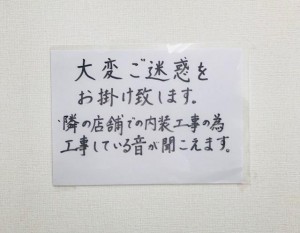 大変ご迷惑を
お掛け致します。
・隣の店舗での内装工事の為
工事している音が聞こえます。